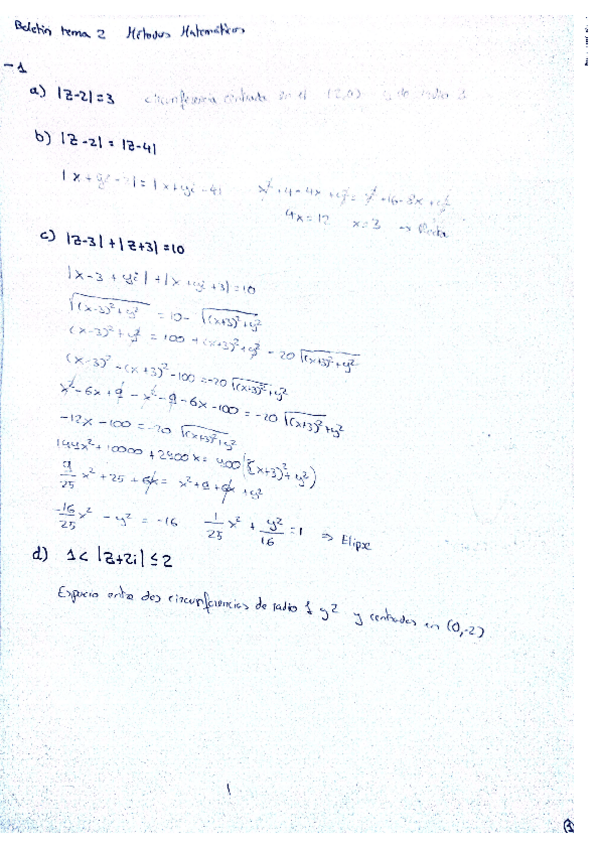 Boletín tema 2 Métodos Matemáticos
-1
a) |z-2|=3 circunferencia centrada en el (2,0) y de radio
b) |z-2| = |z-4|
|x+yi-2|=|x+yi-4| x²+4-4x+y²=x²+16-8x+y²
4x=12 x=3 → Recta
c) |z-3|+|z+3|=10
|x-3+yi|+|x+yi+3|=10
√((x-3)²+y²) = 10-√((x+3)²+y²)
(x-3)²+y² = 100+(x+3)²+y²-20√((x+3)²+y²)
(x-3)²-(x+3)²-100=-20√((x+3)²+y²)
x²-6x+9-x²-9-6x-100=-20√((x+3)²+y²)
-12x-100=-20√((x+3)²+y²)
144x²+10000+2400x=400((x+3)²+y²)
9/25 x²+25+6x=x²+9+6x+y²
-16/25 x²-y²=-16 1/25 x²+y²/16=1 ⇒ Elipse
d) 1<|z+2i|≤2
Espacio entre dos circunferencias de radio 1 y 2 y centradas en (0,-2)
1